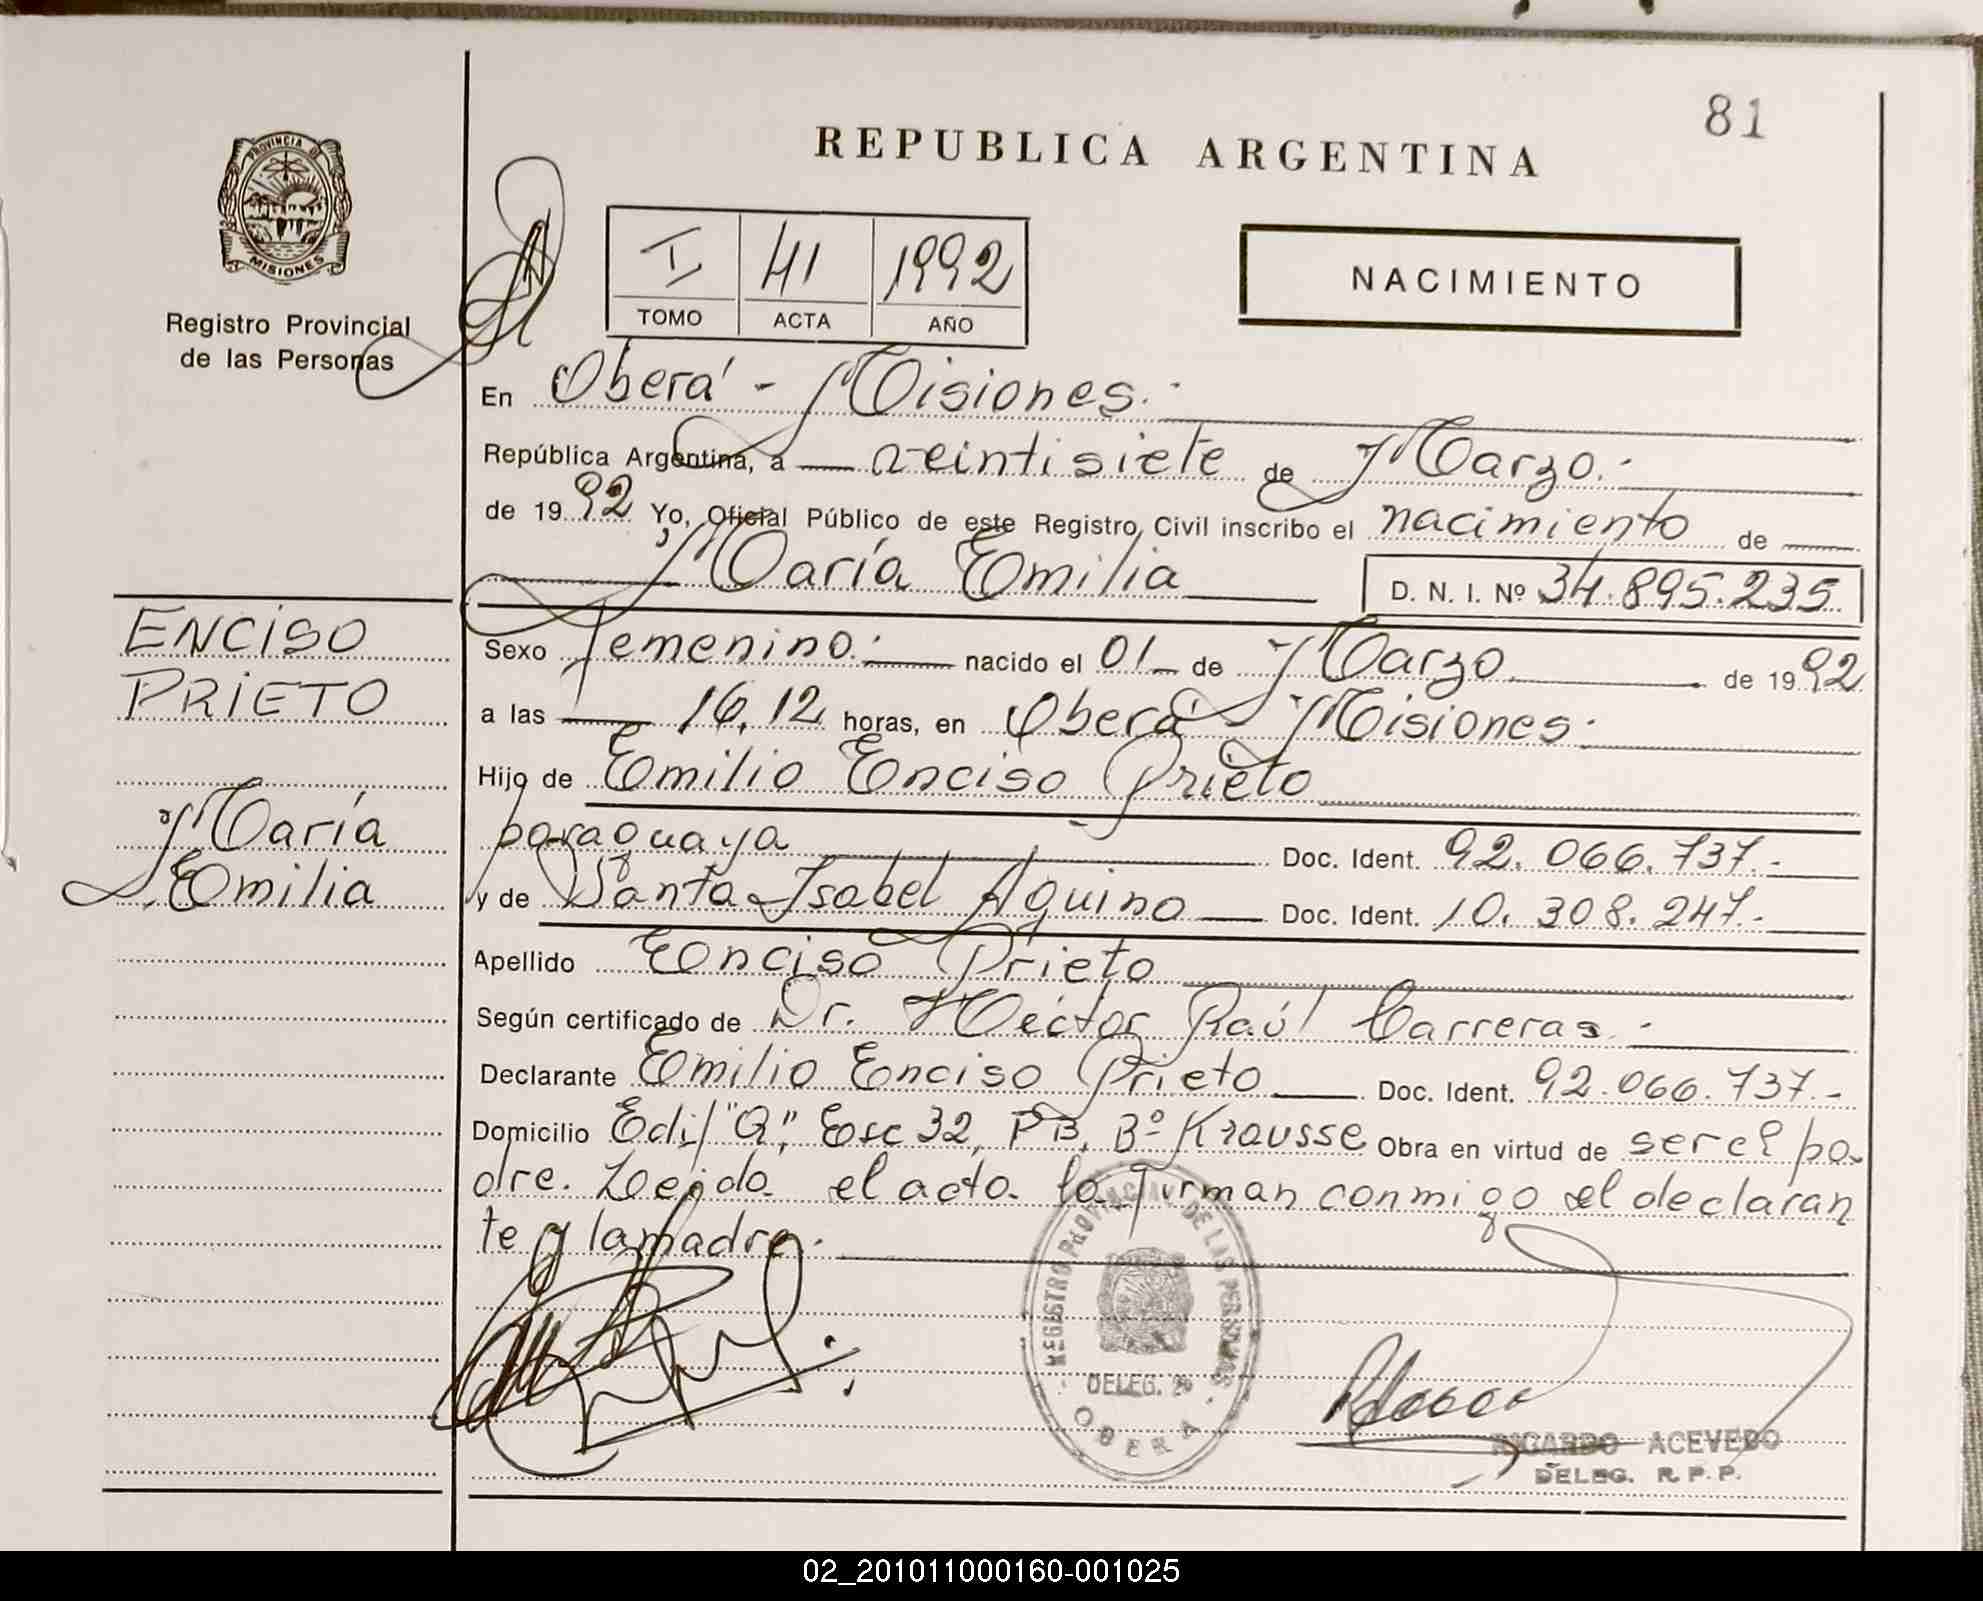 81
REPUBLICA ARGENTINA
PROVINCIA DE
MISIONES
Registro Provincial
de las Personas
I 41 1992
TOMO ACTA AÑO
NACIMIENTO
En Oberá - Misiones.-
República Argentina, a veintisiete de Marzo.-
de 1992 Yo, Oficial Público de este Registro Civil inscribo el nacimiento de
María Emilia D. N. I. Nº 34.895.235
ENCISO
PRIETO
María
Emilia
Sexo femenino.- nacido el 01 de Marzo de 1992
a las 16,12 horas, en Oberá Misiones.
Hijo de Emilio Enciso Prieto
paraguaya Doc. Ident. 92.066.737.-
y de Santa Isabel Aquino Doc. Ident. 10.308.247.-
Apellido Enciso Prieto
Según certificado de Dr. Héctor Raúl Carreras.-
Declarante Emilio Enciso Prieto Doc. Ident. 92.066.737.-
Domicilio Edif "Q", Esc 32, PB, Bº Krausse Obra en virtud de ser el pa-
dre. Leída el acta la firman conmigo el declaran
te y la madre.
REGISTRO PROVINCIAL DE LAS PERSONAS
DELEG.
OBERA
RICARDO ACEVEDO
DELEG. R. P. P.
02_201011000160-001025